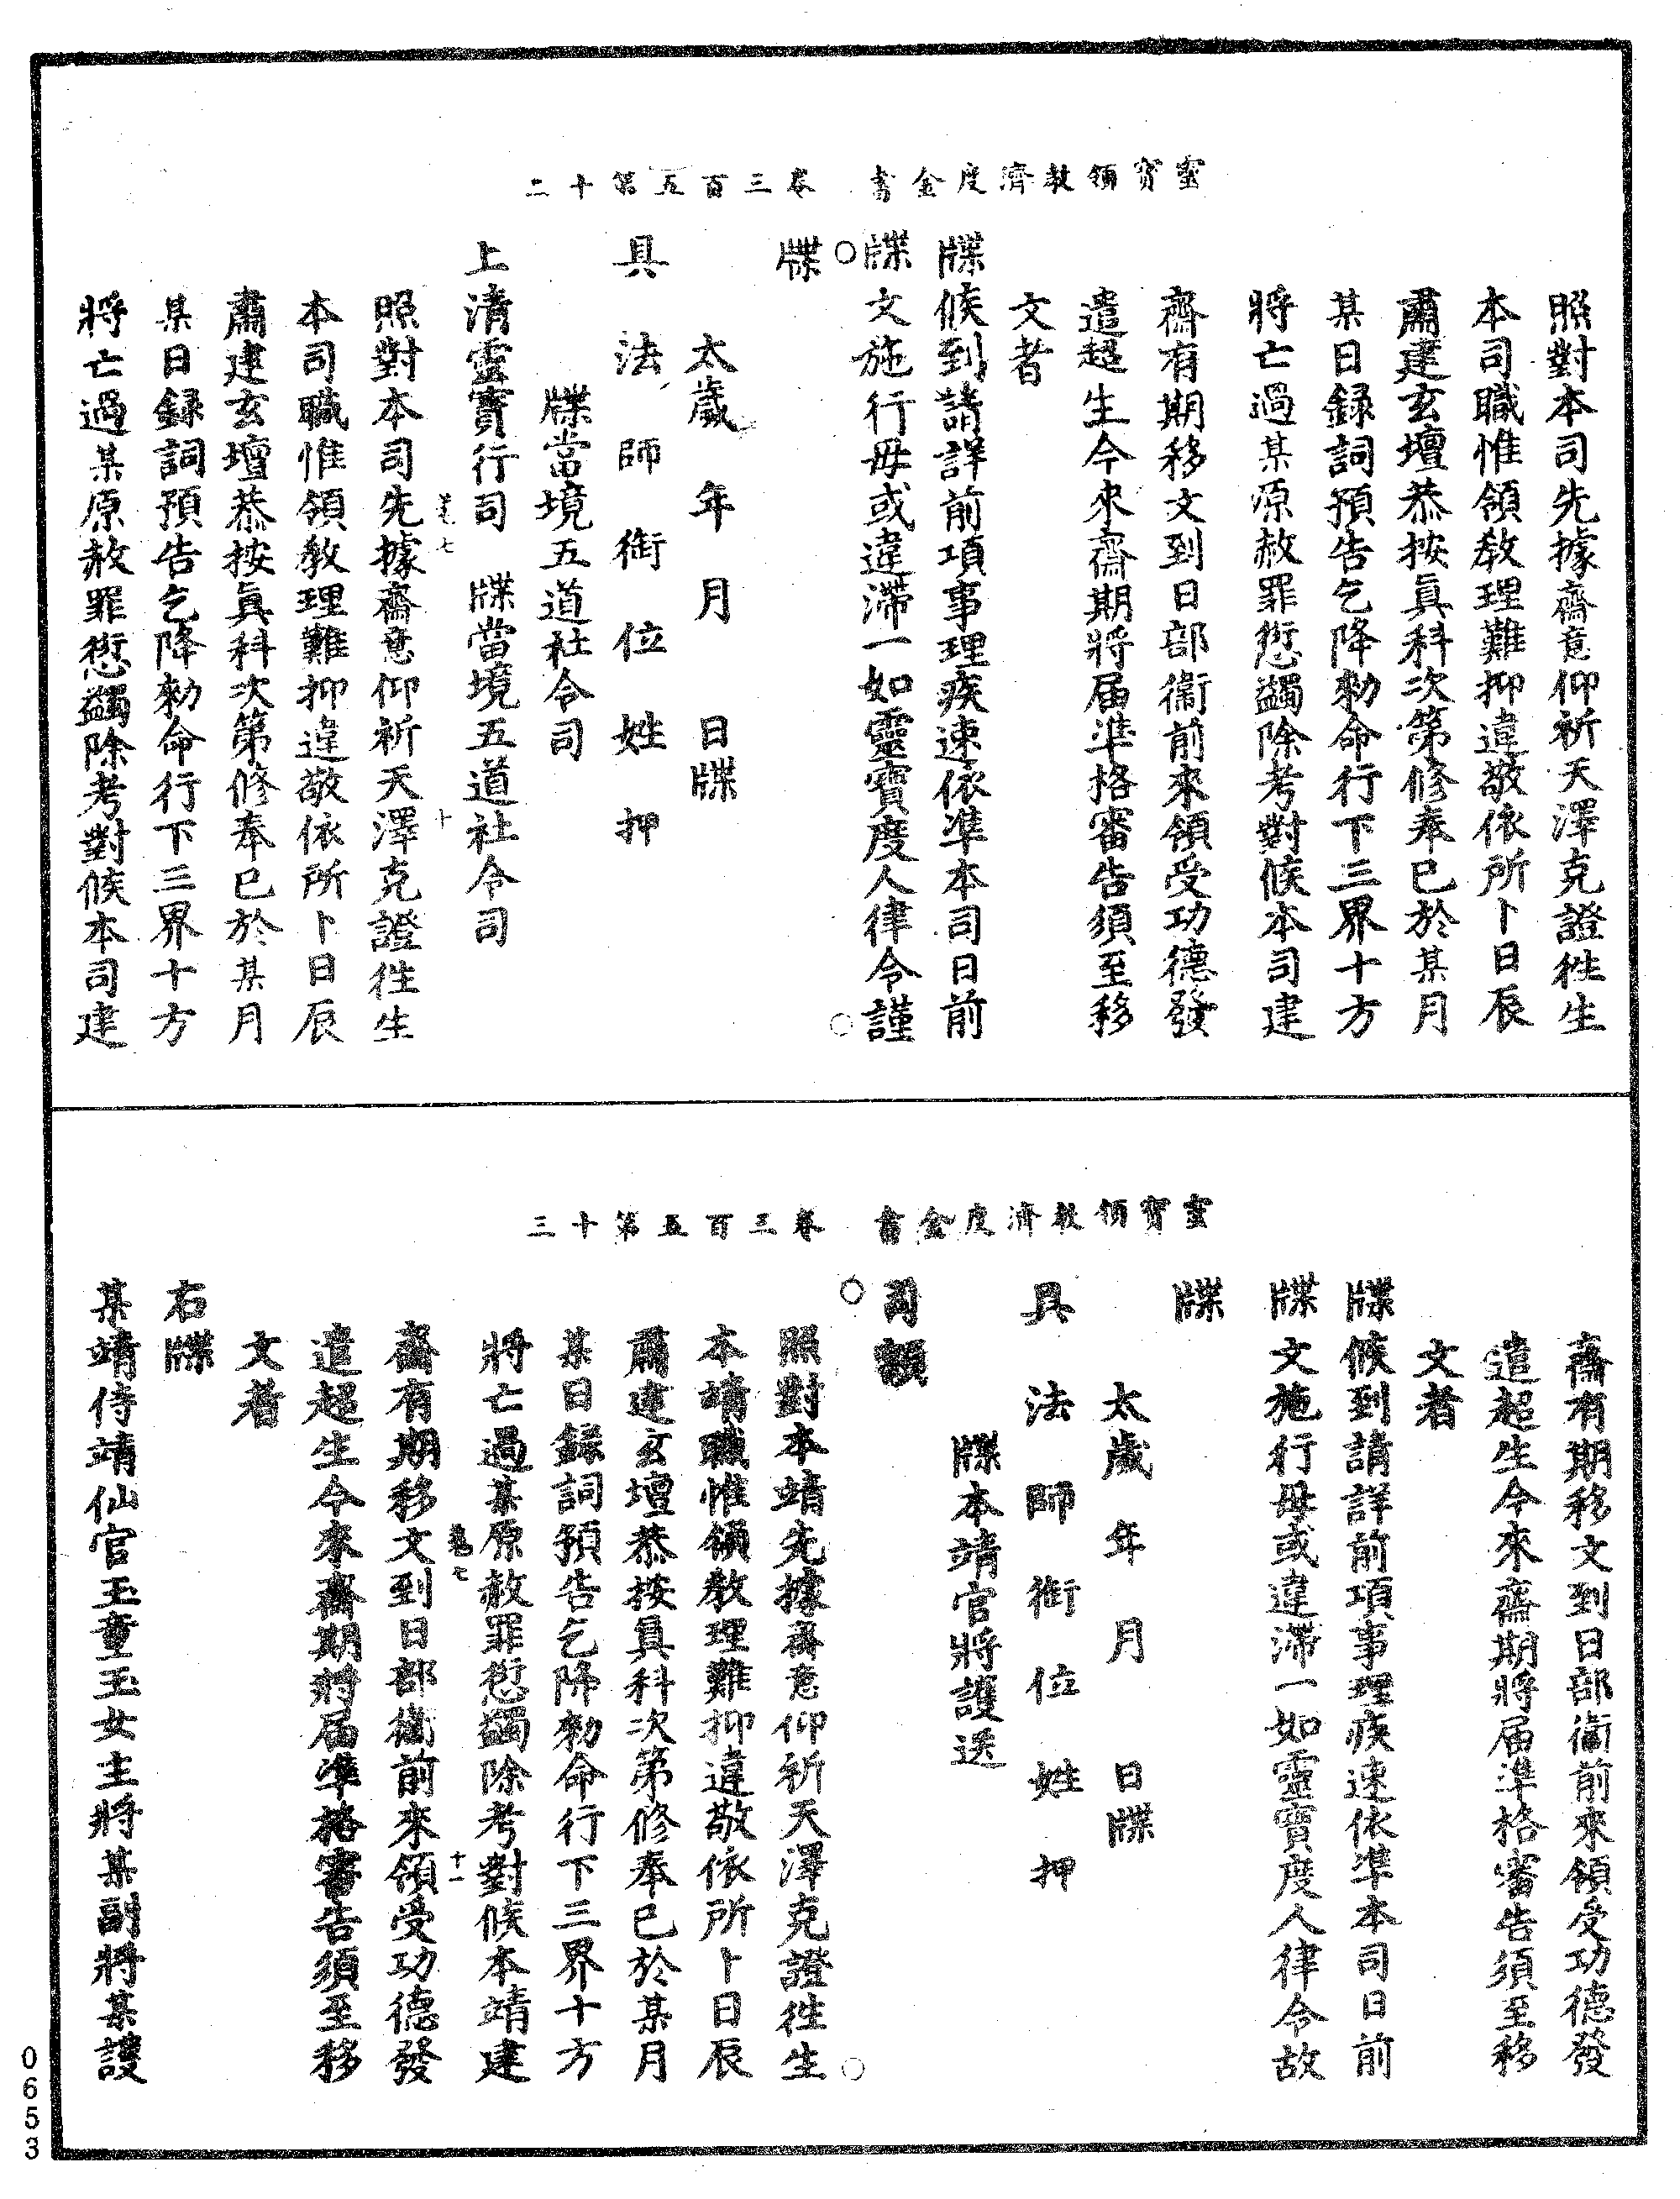 靈寶領教濟度金書　卷三百五第十二
照對本司先據齋意仰祈天澤克證徃生
本司職惟領教理難抑違敬依所卜日辰
肅建玄壇恭按眞科次第修奉已於某月
某日録詞預告乞降勑命行下三界十方
將亡過某原赦罪愆蠲除考對候本司建
齋有期移文到日部衞前來領受功德發
遣超生今來齋期將届準格審告須至移
文者
牒候到請詳前項事理疾速依準本司日前
牒文施行毋或違滯一如靈寶度人律令謹
牒
太歲　年　月　日牒
具法師銜位姓押
牒當境五道社令司
上清靈寶行司　牒當境五道社令司
照對本司先據齋意仰祈天澤克證徃生
本司職惟領教理難抑違敬依所卜日辰
肅建玄壇恭按眞科次第修奉已於某月
某日録詞預告乞降勑命行下三界十方
將亡過某原赦罪愆蠲除考對候本司建
靈寶領教濟度金書　卷三百五第十三
齋有期移文到日部衞前來領受功德發
遣超生今來齋期將届準格審告須至移
文者
牒候到請詳前項事理疾速依準本司日前
牒文施行毋或違滯一如靈寶度人律令故
牒
太歲　年　月　日牒
具法師銜位姓押
牒本靖官將護送
司額
照對本靖先據齋意仰祈天澤克證徃生
本靖職惟領教理難抑違敬依所卜日辰
肅建玄壇恭按眞科次第修奉已於某月
某日録詞預告乞降勑命行下三界十方
將亡過某原赦罪愆蠲除考對候本靖建
齋有期移文到日部衞前來領受功德發
遣超生今來齋期將届準格審告須至移
文者
右牒
某靖侍靖仙官玉童玉女主將某副將某護
0653